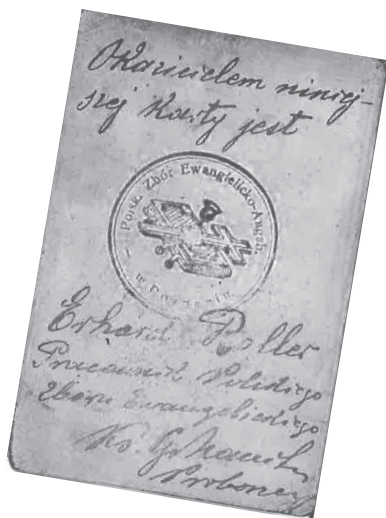 Okazicielem niniej-
szej Karty jest
Polsk. Zbór Ewangielicko-Augsb.
w Poznaniu
Erhard Roller
Pracownik Polskiego
Zboru Ewangelickiego
Ks.
Proboszcz